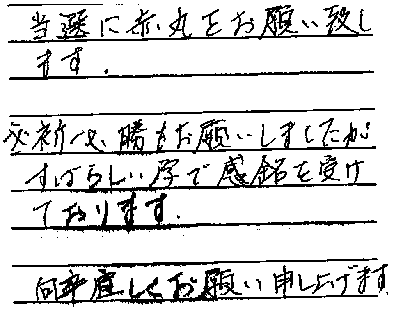 当選に赤丸をお願い致し
ます.
必祈必勝をお願いしましたが
すばらしい字で感銘を受け
ております.
何卒宜しくお願い申し上げます